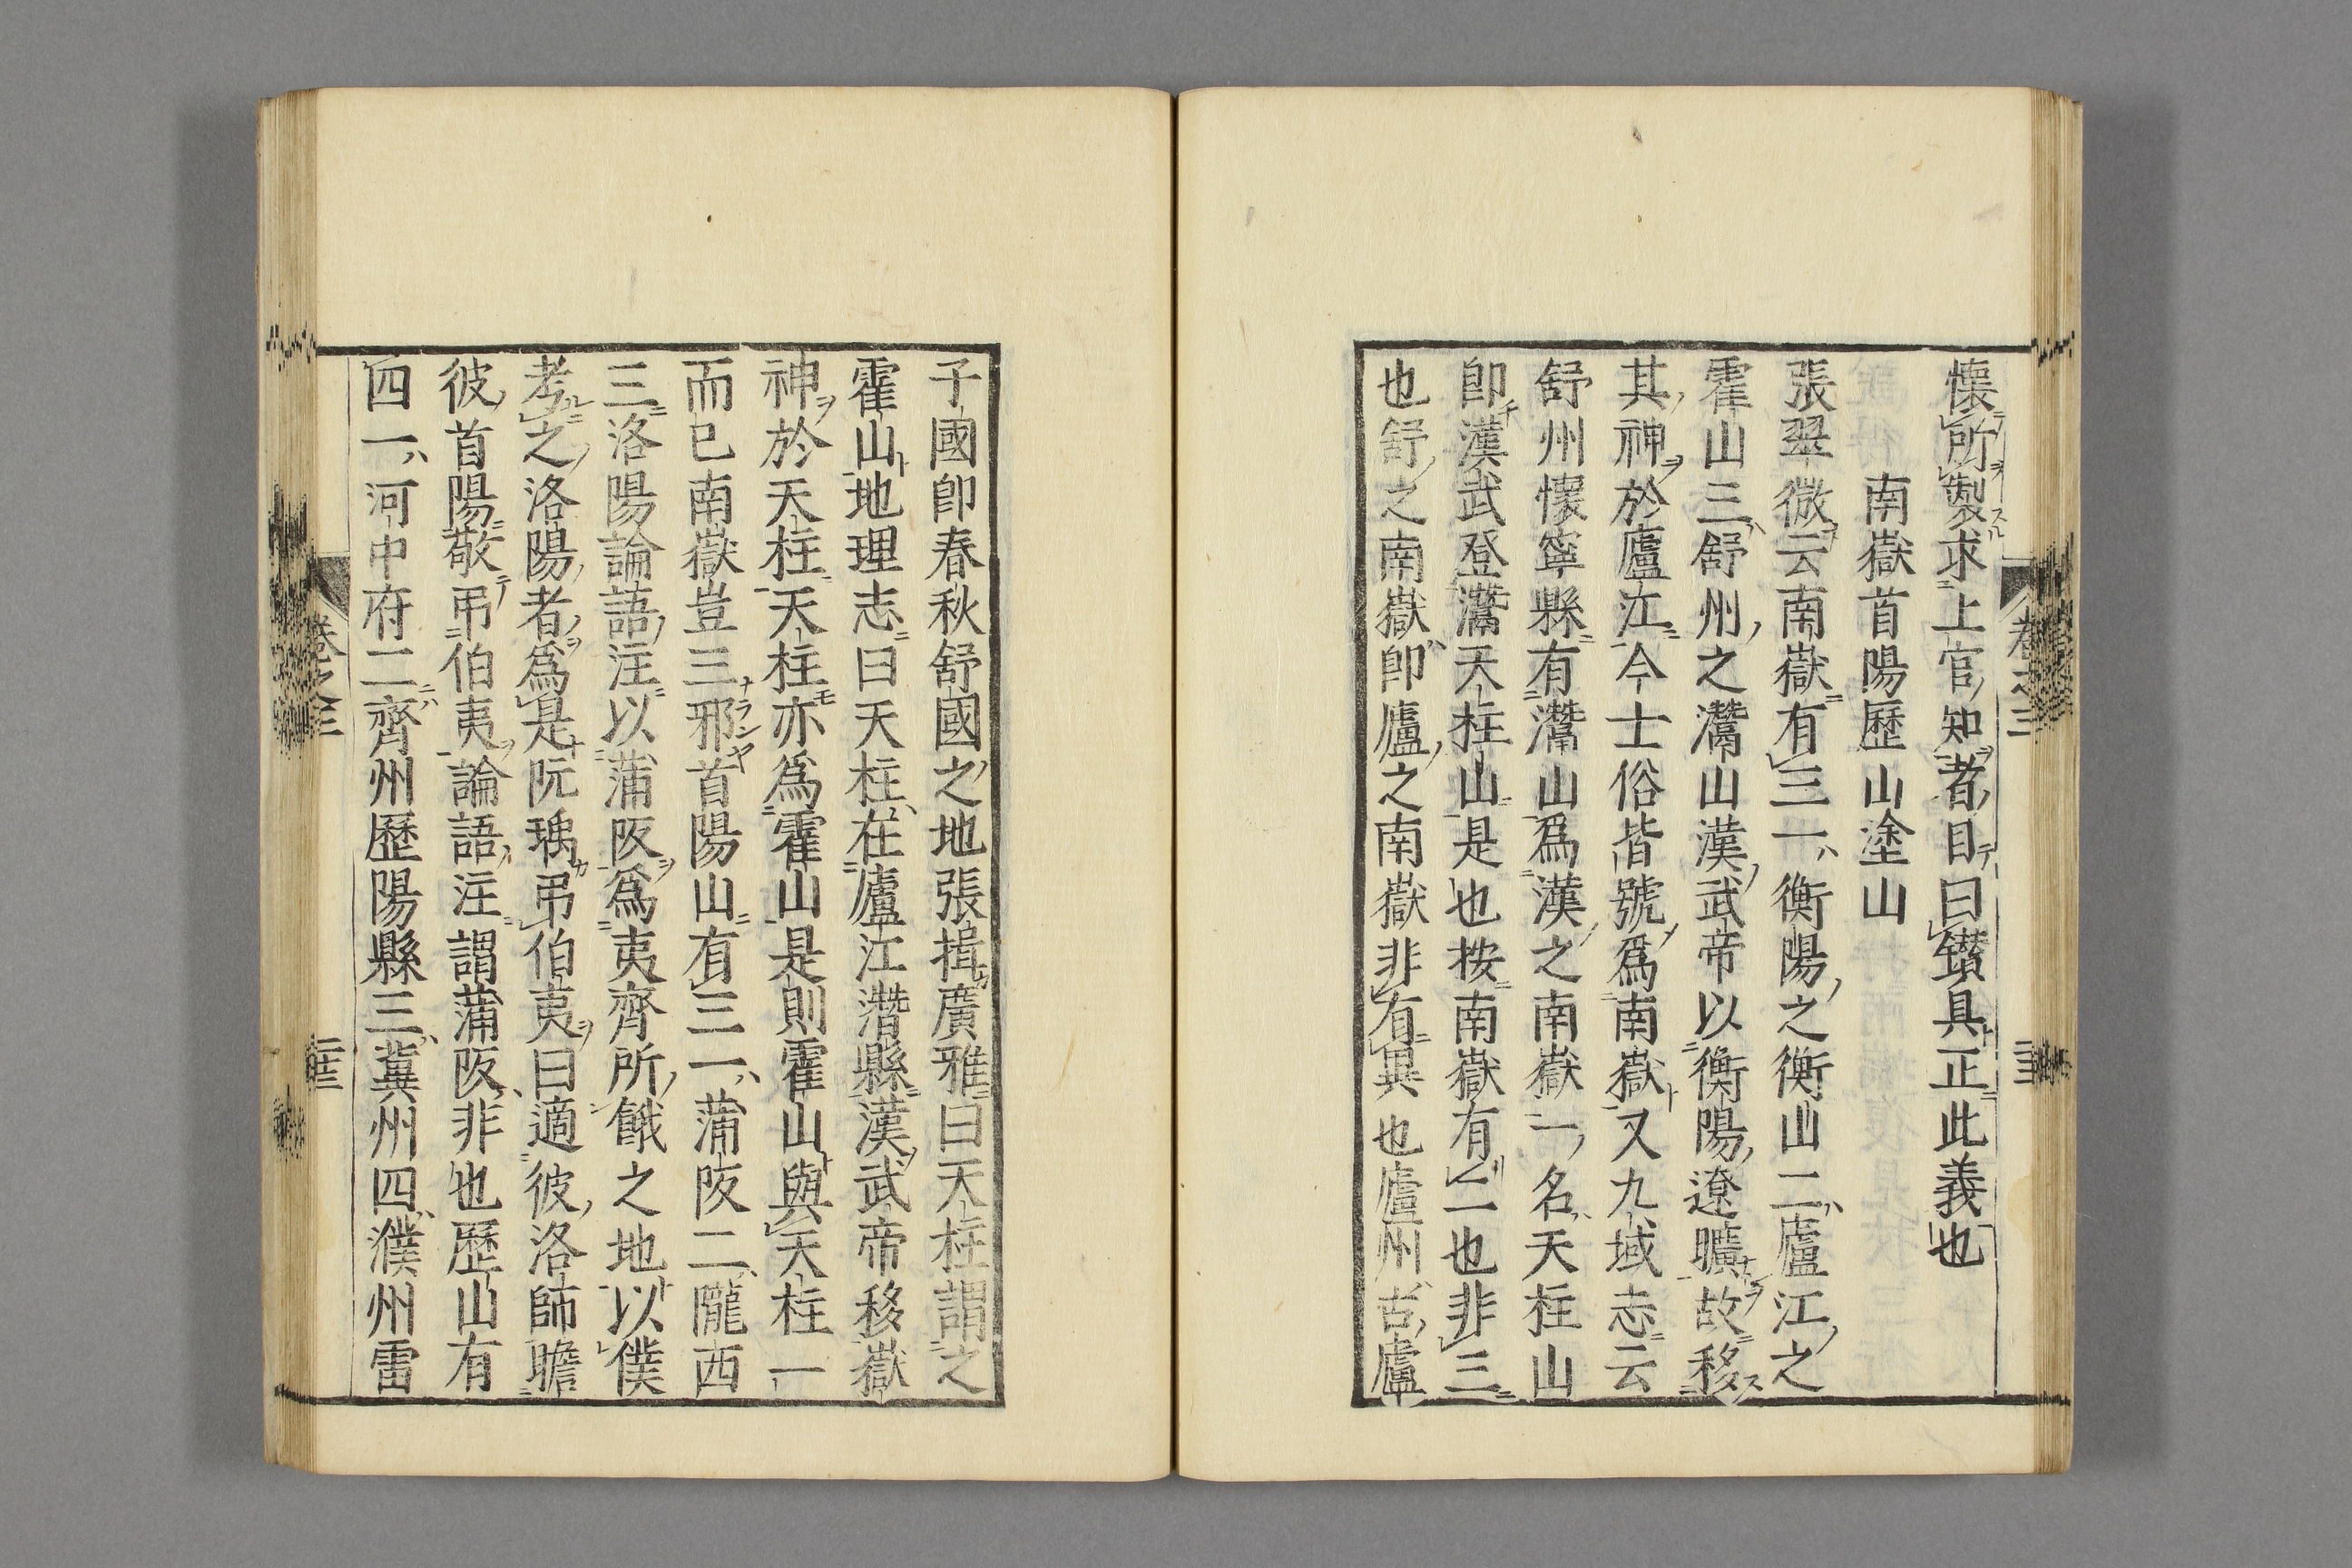 懷所製求上官知者目曰鑚具正此義也
南嶽首陽歷山塗山
張翠微云南嶽有三一衡陽之衡山二廬江之
霍山三舒州之灊山漢武帝以衡陽遼曠故移
其神於廬江今士俗皆號爲南嶽又九域志云
舒州懷寧縣有灊山爲漢之南嶽一名天柱山
卽漢武登灊天柱山是也按南嶽有二也非三
也舒之南嶽卽廬之南嶽非有異也廬州古廬
子國卽春秋舒國之地張揖廣雅曰天柱謂之
霍山地理志曰天柱在廬江潛縣漢武帝移嶽
神於天柱天柱亦爲霍山是則霍山與天柱一
而已南嶽豈三邪首陽山有三一蒲阪二隴西
三洛陽論語注以蒲阪爲夷齊所餓之地以僕
考之洛陽者爲是阮瑀弔伯夷曰適彼洛師瞻
彼首陽敬弔伯夷論語注謂蒲阪非也歷山有
四一河中府二齊州歷陽縣三冀州四濮州雷